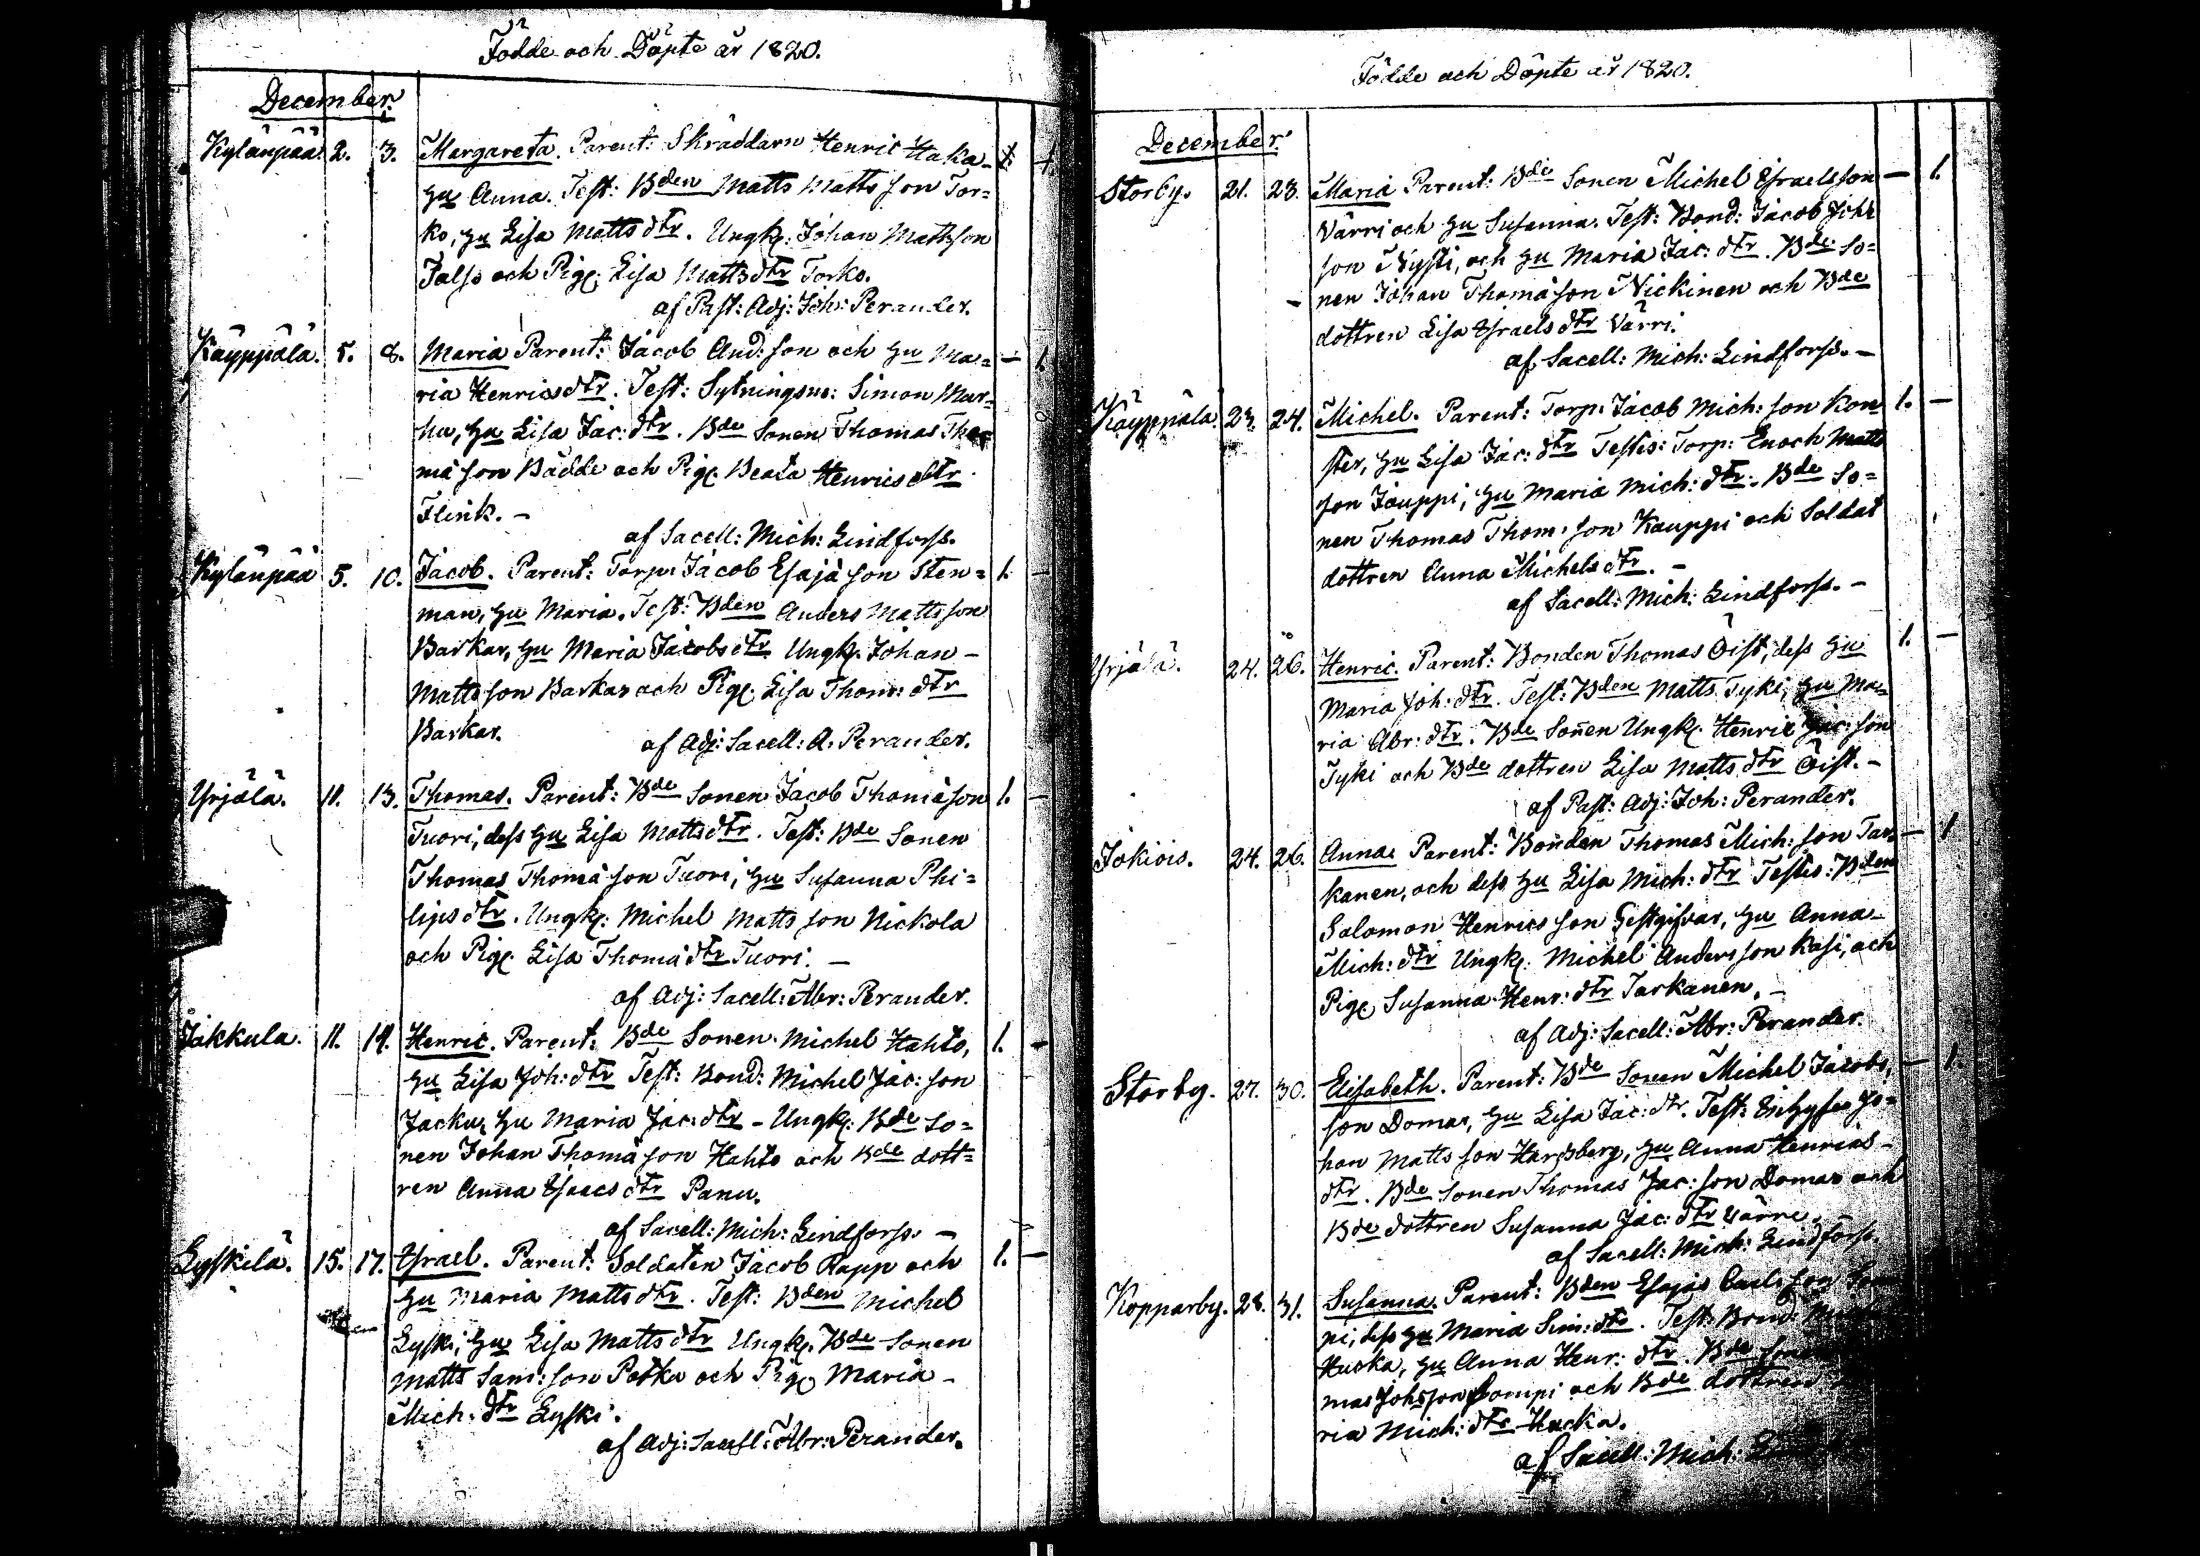 Födde och Döpte år 1820.
December.
Kylänpää. 2. 3. Margareta. Parent: Skräddarn Henric Haka-
Hu Anna. Test: Bden Matts Matts son Tor=
ko, Hu Lisa Matts dtr. Ungk: Johan Mattsson
Falss och Pig. Lisa Matts dtr Torko.
af Past: Adj: Joh: Perander.
Käyppälä. 5. 8. Maria Parent: Jacob And: son och Hu Ma= — 1.
ria Henrics dtr. Test: Sytningsm: Simon Mar=
hu, Hu Lisa Jac: dtr. Bde Sonen Thomas Tho
mä son Bädde och Pig. Beata Henrics dtr
Flink. —
af Sacell: Mich: Lindforss.
Kylänpää 5. 10. Jacob. Parent: Torp: Jacob Esajä son Sten= 1. —
man, Hu Maria. Test: Bden Anders Matts son
Barkar, Hu Maria Jacobs dtr. Ungk. Johan —
Matts son Barkar och Pig. Lisa Thom: dtr
Barkar.
af Adj: Sacell: A. Perander.
Yrjälä. 11. 13. Thomas. Parent: Bde Sonen Jacob Thomäson 1. —
Tuori, dess Hu Lisa Matts dtr. Test: Bde Sonen
Thomas Thomä son Tuori, Hu Susanna Phi=
lips dtr. Ungk: Michel Matts son Nickola
och Pig. Lisa Thomä dtr Tuori. —
af Adj: Sacell: Abr: Perander.
Jåkkula. 11. 14. Henric. Parent: Bde Sonen Michel Hahto, 1. —
Hu Lisa Joh: dtr Test: Bond: Michel Jac: son
Jacku, Hu Maria Jac: dtr — Ungk: Bde So=
nen Johan Thomä son Hahto och Bde dott=
ren Anna Isaacs dtr Panu.
af Sacell: Mich: Lindforss. —
Lyskilä. 15. 17. Israel. Parent: Soldaten Jacob Rapp och 1. —
Hu Maria Matts dtr. Test: Bden Michel
Lyski, Hu Lisa Matts dtr Ungk. Bde Sonen
Matts Sam: son Potka och Pig. Maria —
Mich: dtr Lyski.
af Adj: Sacell: Abr: Perander.
Födde och Döpte år 1820.
December.
Storby. 21. 23. Maria Parent: Bde Sonen Michel Israels son — 1.
Värri och Hu Susanna. Test: Bond: Jacob Joh:
son Nysti, och Hu Maria Jac: dtr. Bde So=
nen Johan Thomä son Nickinen och Bde
dottren Lisa Israels dtr Värri.
af Sacell: Mich: Lindforss. —
Käyppälä 23. 24. Michel. Parent: Torp: Jacob Mich: son Kon 1. —
ster, Hu Lisa Jac: dtr Testes: Torp: Enoch Matts
son Jouppi, Hu Maria Mich: dtr. Bde So=
nen Thomas Thom: son Kauppi och Soldat
dottren Anna Michels dtr. —
af Sacell: Mich: Lindforss. —
Yrjälä. 24. 26. Henric. Parent: Bonden Thomas Öist, dess Hu 1. —
Maria Joh: dtr. Test: Bden Matts Tyki, Hu Ma=
ria Abr: dtr. Bde Sonen Ungk. Henric Jac: son
Tyki och Bde dottren Lisa Matts dtr Öist. —
af Past: Adj: Joh: Perander.
Jokiois. 24. 26. Anna. Parent: Bonden Thomas Mich: son Tar= — 1
kanen, och dess Hu Lisa Mich: dtr Testes: Bden
Salomon Henrics son Gestgifvar, Hu Anna —
Mich: dtr Ungk: Michel Anders son Kasi, och
Pig. Susanna Henr: dtr Tarkanen. —
af Adj: Sacell: Abr: Perander.
Storby. 27. 30. Elisabeth. Parent: Bde Sonen Michel Jacobs, — 1.
son Domar, Hu Lisa Jac: dtr. Test: Jo=
han Matts son Hargsberg, Hu Anna Henrics —
dtr. Bde Sonen Thomas Jac: son Domar och
Bde dottren Susanna Jac: dtr Värre. —
af Sacell: Mich: Lindforss.
Kopparby. 28. 31. Susanna. Parent: Bden Esajas Carls son
pi, dess Hu Maria Sim: dtr. Test: Bond:
Hucka, Hu Anna Henr: dtr. Bde
mas Johsson Sompi och Bde dottren
ria Mich: dtr Hucka.
af Sacell: Mich: